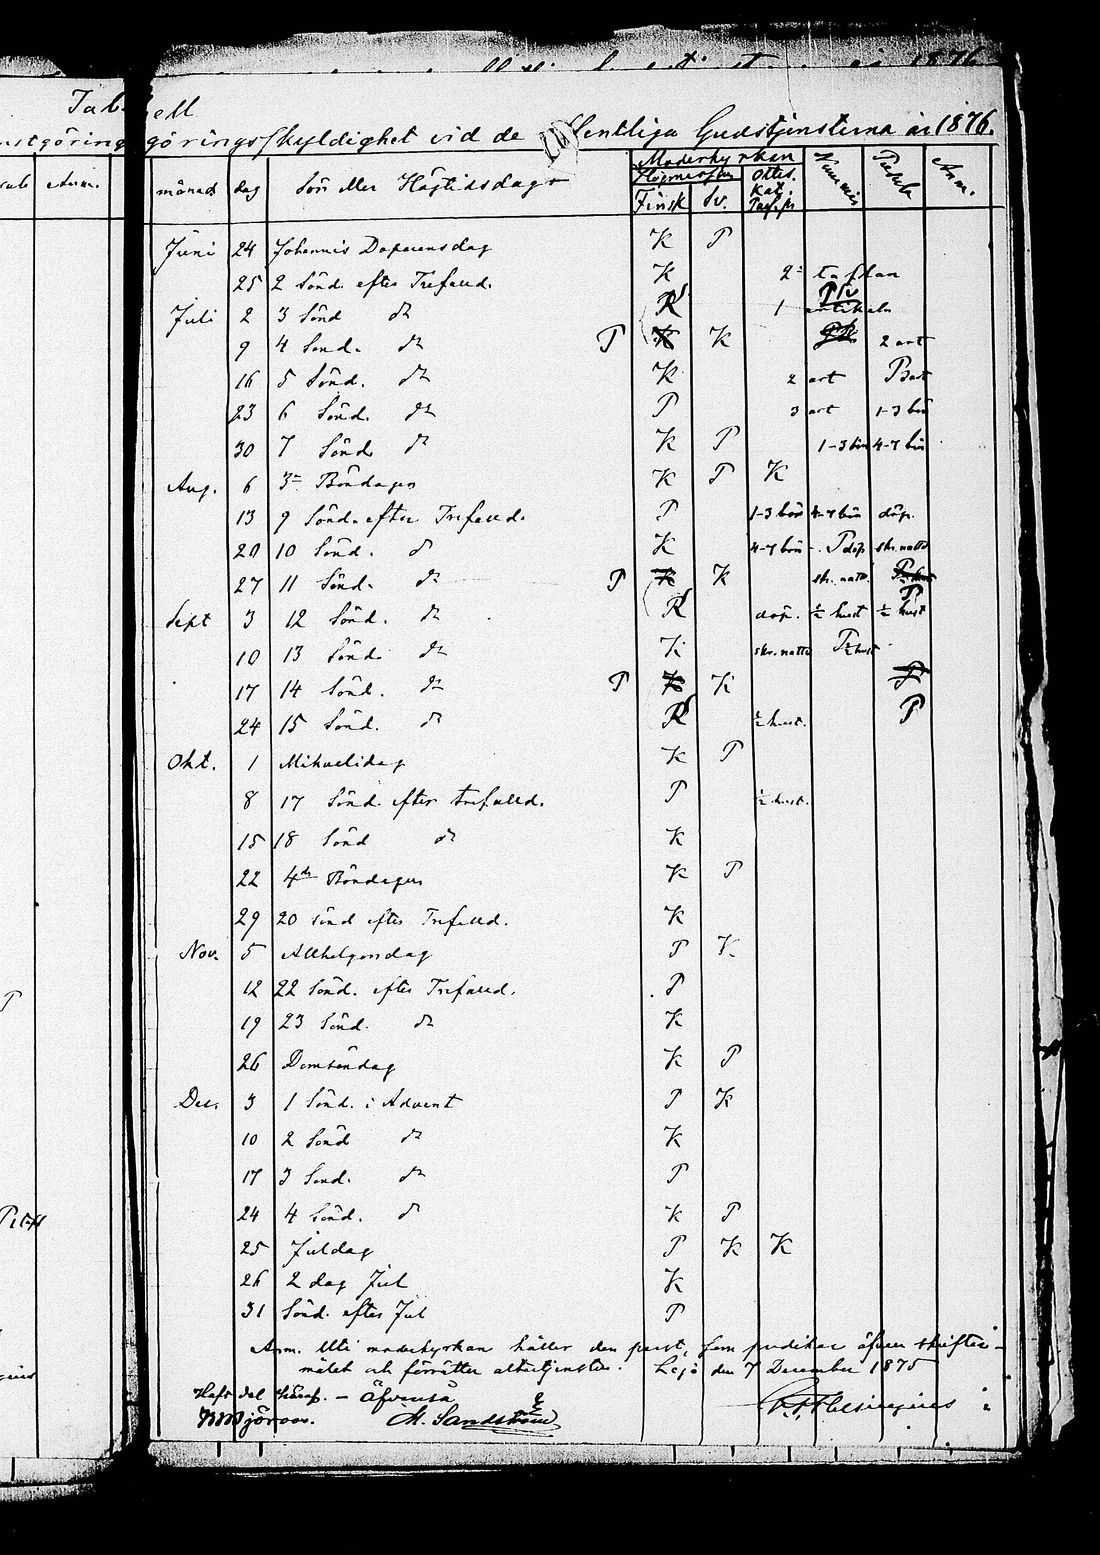 Tabell
görings skyldighet vid de offentliga Gudstjensterna år 1876.
Anm. månad dag Sön eller Högtidsdagar Moderkyrkan Högmessan Finsk Sv. Ottes. Kat. Nummis Pusula Anm.
Juni 24 Johannis Döparensdag K P
25 2 Sönd. efter Trefald. K 2 taflan
Juli 2 3 Sönd do R 1 artikeln
9 4 Sönd. do P K K 2 art
16 5 Sönd. do K 2 art P art
23 6 Sönd. do P 3 art 1-3 bön
30 7 Sönd. do K P 1-3 bön 4-7 bön
Aug. 6 3de Böndagen K P K
13 9 Sönd. efter Trefald. P 1-3 bön 4-7 bön döp.
20 10 Sönd. do K 4-7 bön P döp skr. nattv
27 11 Sönd. do P K K skr. nattv.
Sept 3 12 Sönd. do R döp. ½ hust P ½ hust
10 13 Sönd. do K skr. nattv P ½ hust
17 14 Sönd. do P K K P
24 15 Sönd. do R ½ hust. P
Okt. 1 Mikaelidag K P
8 17 Sönd. efter trefald. P ½ hust.
15 18 Sönd do K
22 4de Böndagen K P
29 20 Sönd efter Trefald. K
Nov. 5 Allhelgondag P K
12 22 Sönd. efter Trefald. P
19 23 Sönd. do K
26 Domsöndag K P
Dec. 3 1 Sönd. i Advent P K
10 2 Sönd do K
17 3 Sönd. do P
24 4 Sönd. do K P
25 Juldag P K K
26 2 dag Jul K
31 Sönd. efter Jul P
Anm. Uti moderkyrkan håller den prest, som predikar äfven skrifter-
målet och förrättar altartjensten. Lojo den 7 December 1875
Haft del häraf. – Äfvenså
M. Sandström